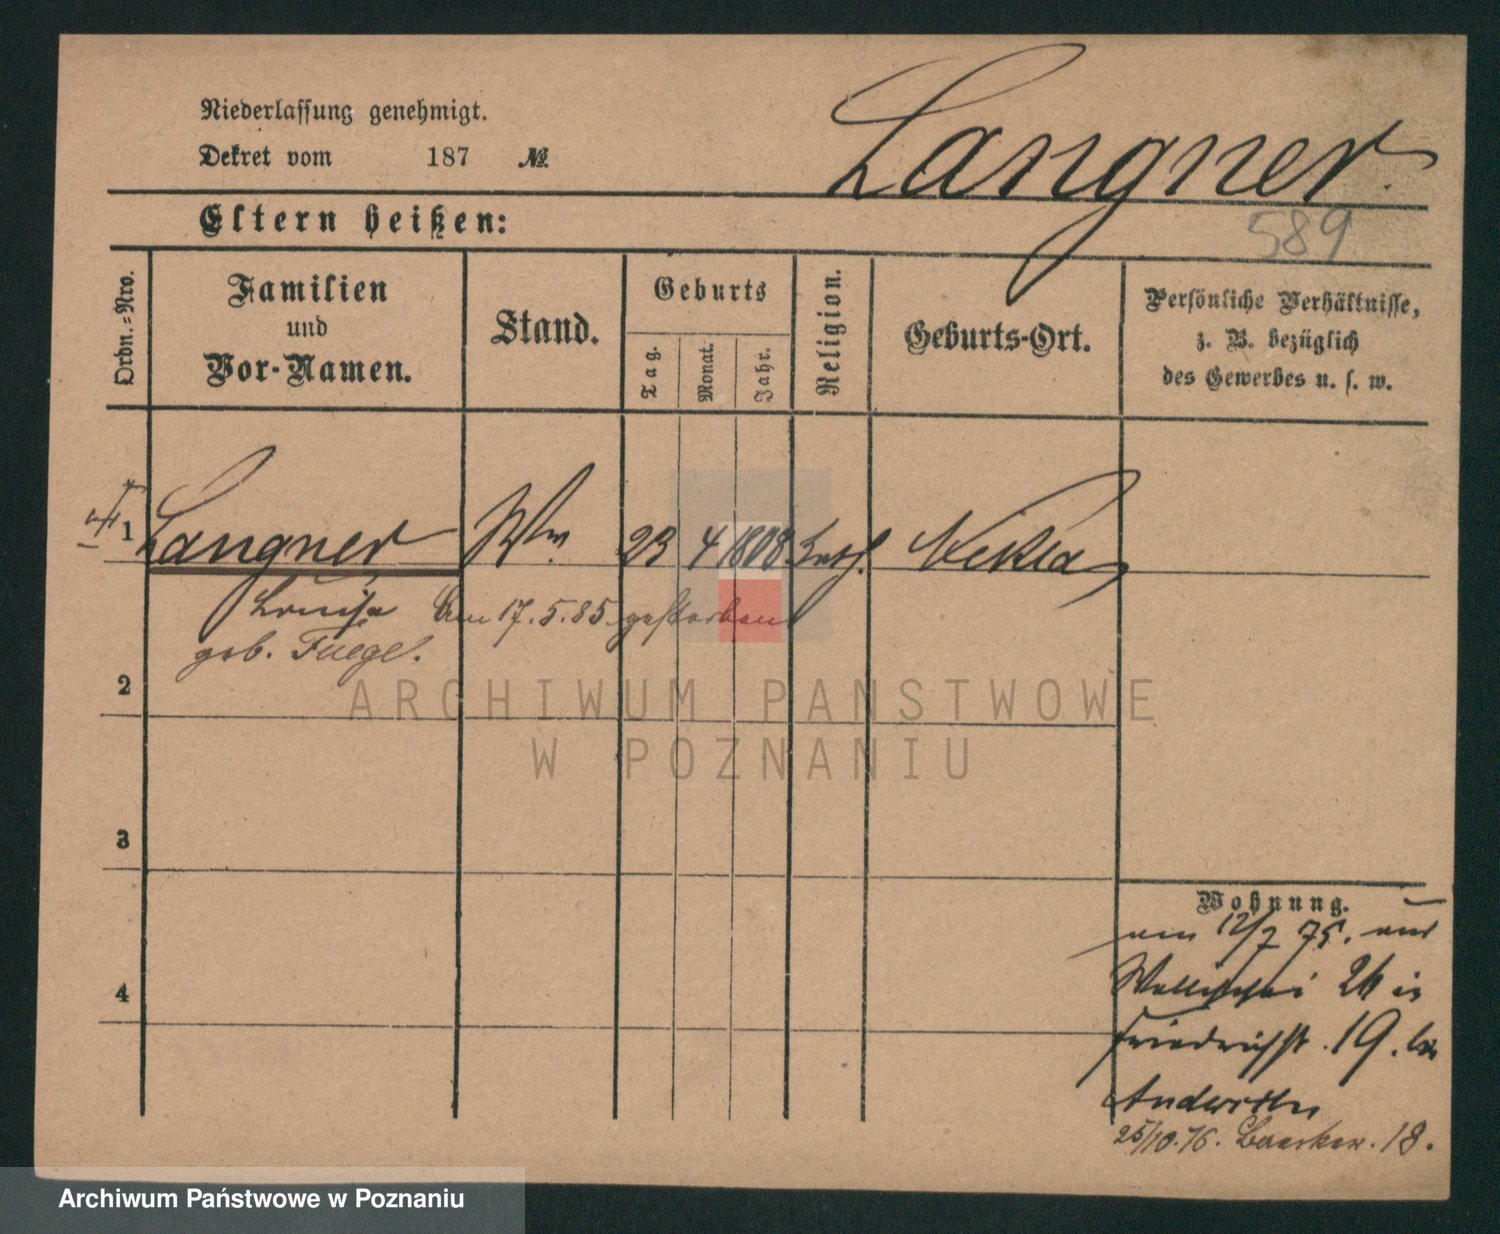 Niederlassung genehmigt.
Dekret vom 187 №
Langner.
Eltern heißen:
589
Ordn.=Nro.
Familien
und
Vor-Namen.
Stand.
Geburts
Tag.
Monat.
Jahr.
Religion.
Geburts-Ort.
Persönliche Verhältnisse,
z. B. bezüglich
des Gewerbes u. s. w.
1 Langner Ww. 23 4 1808 Nekla
Louise am 17.5.85 gestorben
geb.
2
ARCHIWUM PANSTWOWE
W POZNANIU
3
Wohnung.
am 12/7 75. aus
Wallischei 26 in
4
Friedrichst. 19.
25/10.76. 18.
Archiwum Państwowe w Poznaniu